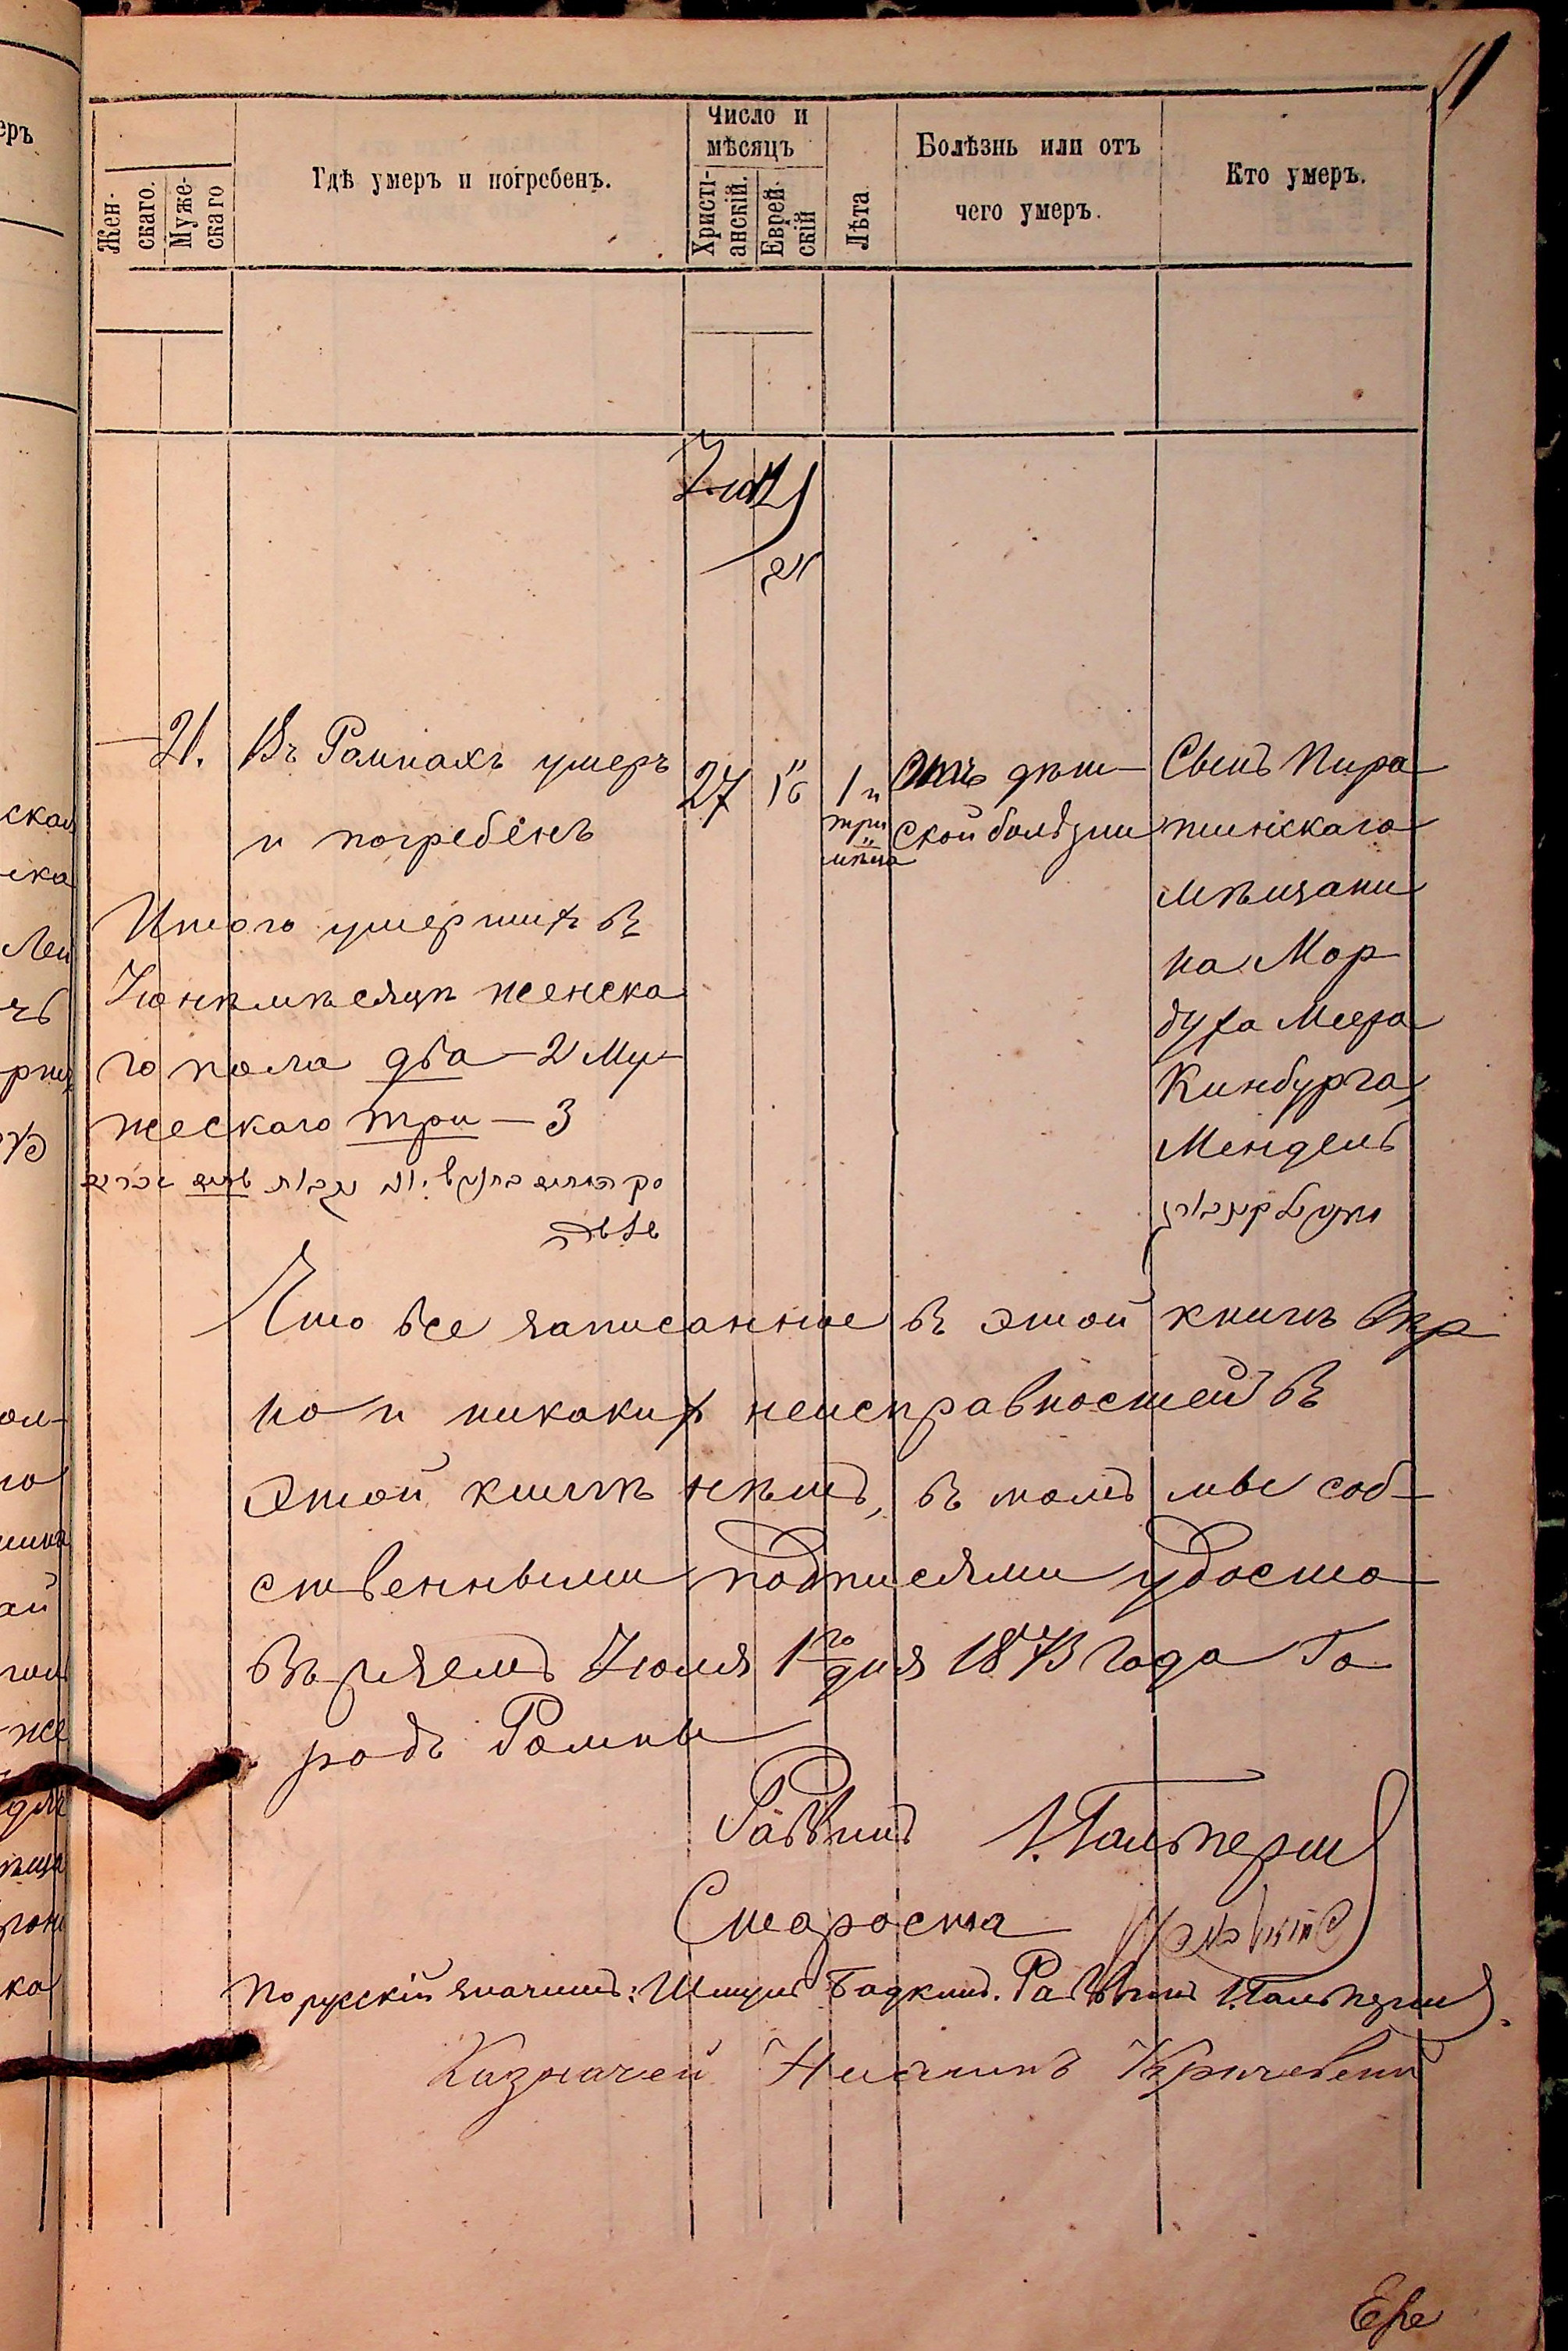 11
Число и
мѣсяцъ
Жен-
скаго.
Муже-
скаго
Гдѣ умеръ и погребенъ.
Христі-
анскій.
Еврей-
скій
Лѣта
Болѣзнь или отъ
чего умеръ.
Кто умеръ.
21.
Въ Ромнахъ умеръ
и погребенъ
27
1 и
три
мѣсяца
Отъ дѣт-
ской болѣзни
Сынъ Пиря
тинскаго
мѣщани
на Мор
духа Меера
Кинбурга,
Мендель
Итого умершихъ въ
Іюнѣ мѣсяцѣ женска
го пола два – 2 Му-
жескаго три – 3
Что все записанное въ этой книгѣ вѣр
но и никакихъ неисправностей въ
этой книгѣ нѣтъ, въ томъ мы соб-
ственными подписями удосто
вѣряемъ Іюля 1го дня 1873 года Го
родъ Ромны
Раввинъ І. Гальперинъ
Староста
По русскій значитъ: Шмуль Бадкинъ. Раввинъ І. Гальперинъ.
Казначей Кричевскій